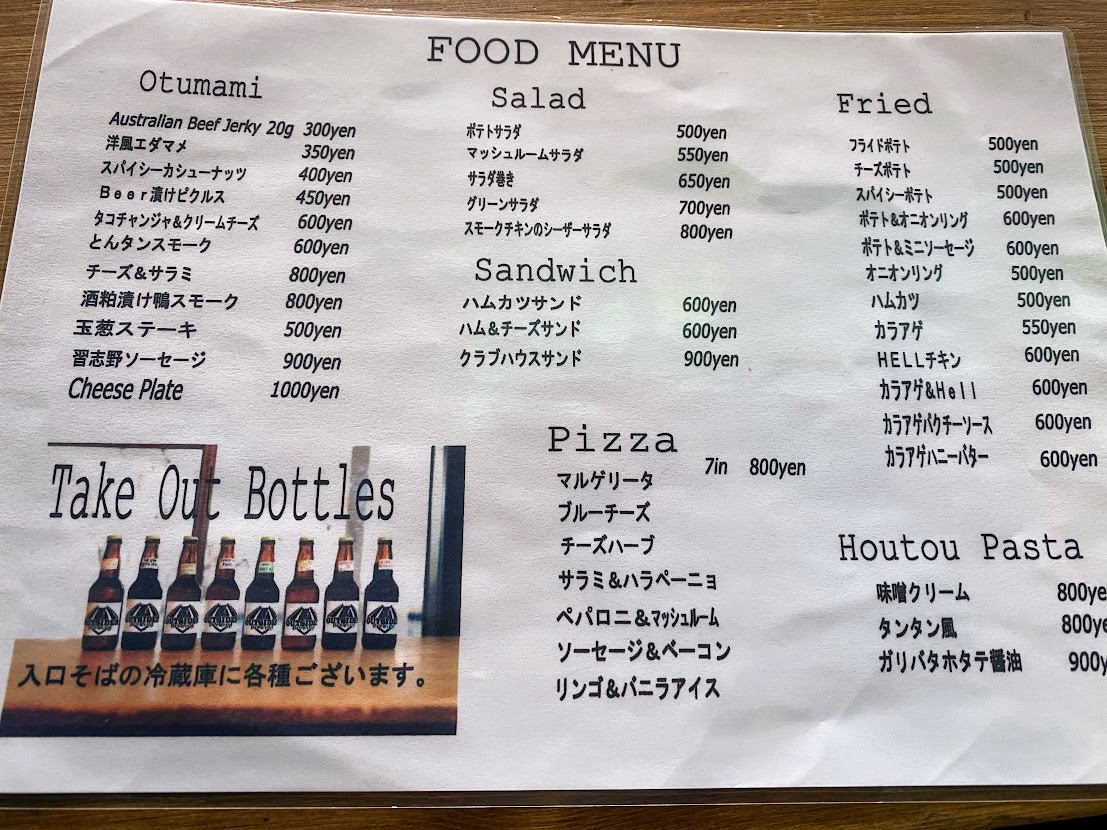 FOOD MENU
Otumami
Australian Beef Jerky 20g 300yen
洋風エダマメ 350yen
スパイシーカシューナッツ 400yen
Beer漬けピクルス 450yen
タコチャンジャ&クリームチーズ 600yen
とんタンスモーク 600yen
チーズ&サラミ 800yen
酒粕漬け鴨スモーク 800yen
玉葱ステーキ 500yen
習志野ソーセージ 900yen
Cheese Plate 1000yen
Take Out Bottles
入口そばの冷蔵庫に各種ございます。
Salad
ポテトサラダ 500yen
マッシュルームサラダ 550yen
サラダ巻き 650yen
グリーンサラダ 700yen
スモークチキンのシーザーサラダ 800yen
Sandwich
ハムカツサンド 600yen
ハム&チーズサンド 600yen
クラブハウスサンド 900yen
Pizza
7in 800yen
マルゲリータ
ブルーチーズ
チーズハーブ
サラミ&ハラペーニョ
ペパロニ&マッシュルーム
ソーセージ&ベーコン
リンゴ&バニラアイス
Fried
フライドポテト 500yen
チーズポテト 500yen
スパイシーポテト 500yen
ポテト&オニオンリング 600yen
ポテト&ミニソーセージ 600yen
オニオンリング 500yen
ハムカツ 500yen
カラアゲ 550yen
HELLチキン 600yen
カラアゲ&Hell 600yen
カラアゲパクチーソース 600yen
カラアゲハニーバター 600yen
Houtou Pasta
味噌クリーム 800ye
タンタン風 800ye
ガリバタホタテ醤油 900y